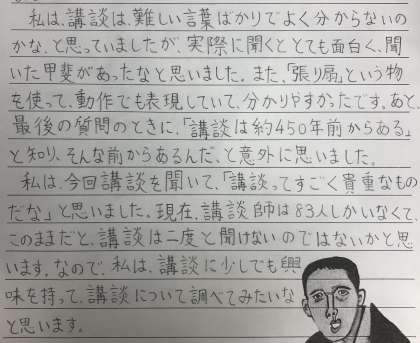 私は、講談は、難しい言葉ばかりでよく分からないの
かな、と思っていましたが、実際に聞くととても面白く、聞
いた甲斐があったなと思いました。また、「張り扇」という物
を使って、動作でも表現していて、分かりやすかったです。あと
最後の質問のときに、「講談は約450年前からある」
と知り、そんな前からあるんだ、と意外に思いました。
私は、今回講談を聞いて、「講談ってすごく貴重なもの
だな」と思いました。現在、講談師は83人しかいなくて、
このままだと、講談は二度と聞けないのではないかと思
います。なので、私は、講談に少しでも興
味を持って、講談について調べてみたいな
と思います。